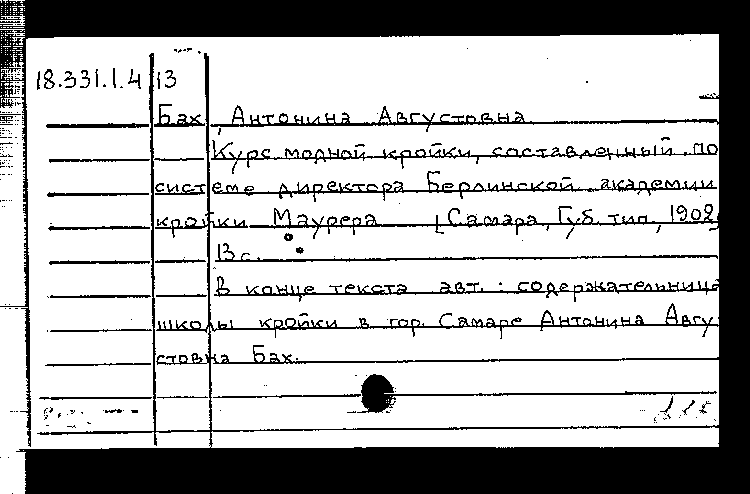 18.331.1.4 13
Бах, Антонина Августовна
Курс модной кройки, составленный по
системе директора Берлинской академии
кройки Маурера [Самара, Губ. тип, 1902]
13 с.
В конце текста авт.: содержательница
школы кройки в гор. Самаре Антонина Авгу
стовна Бах.